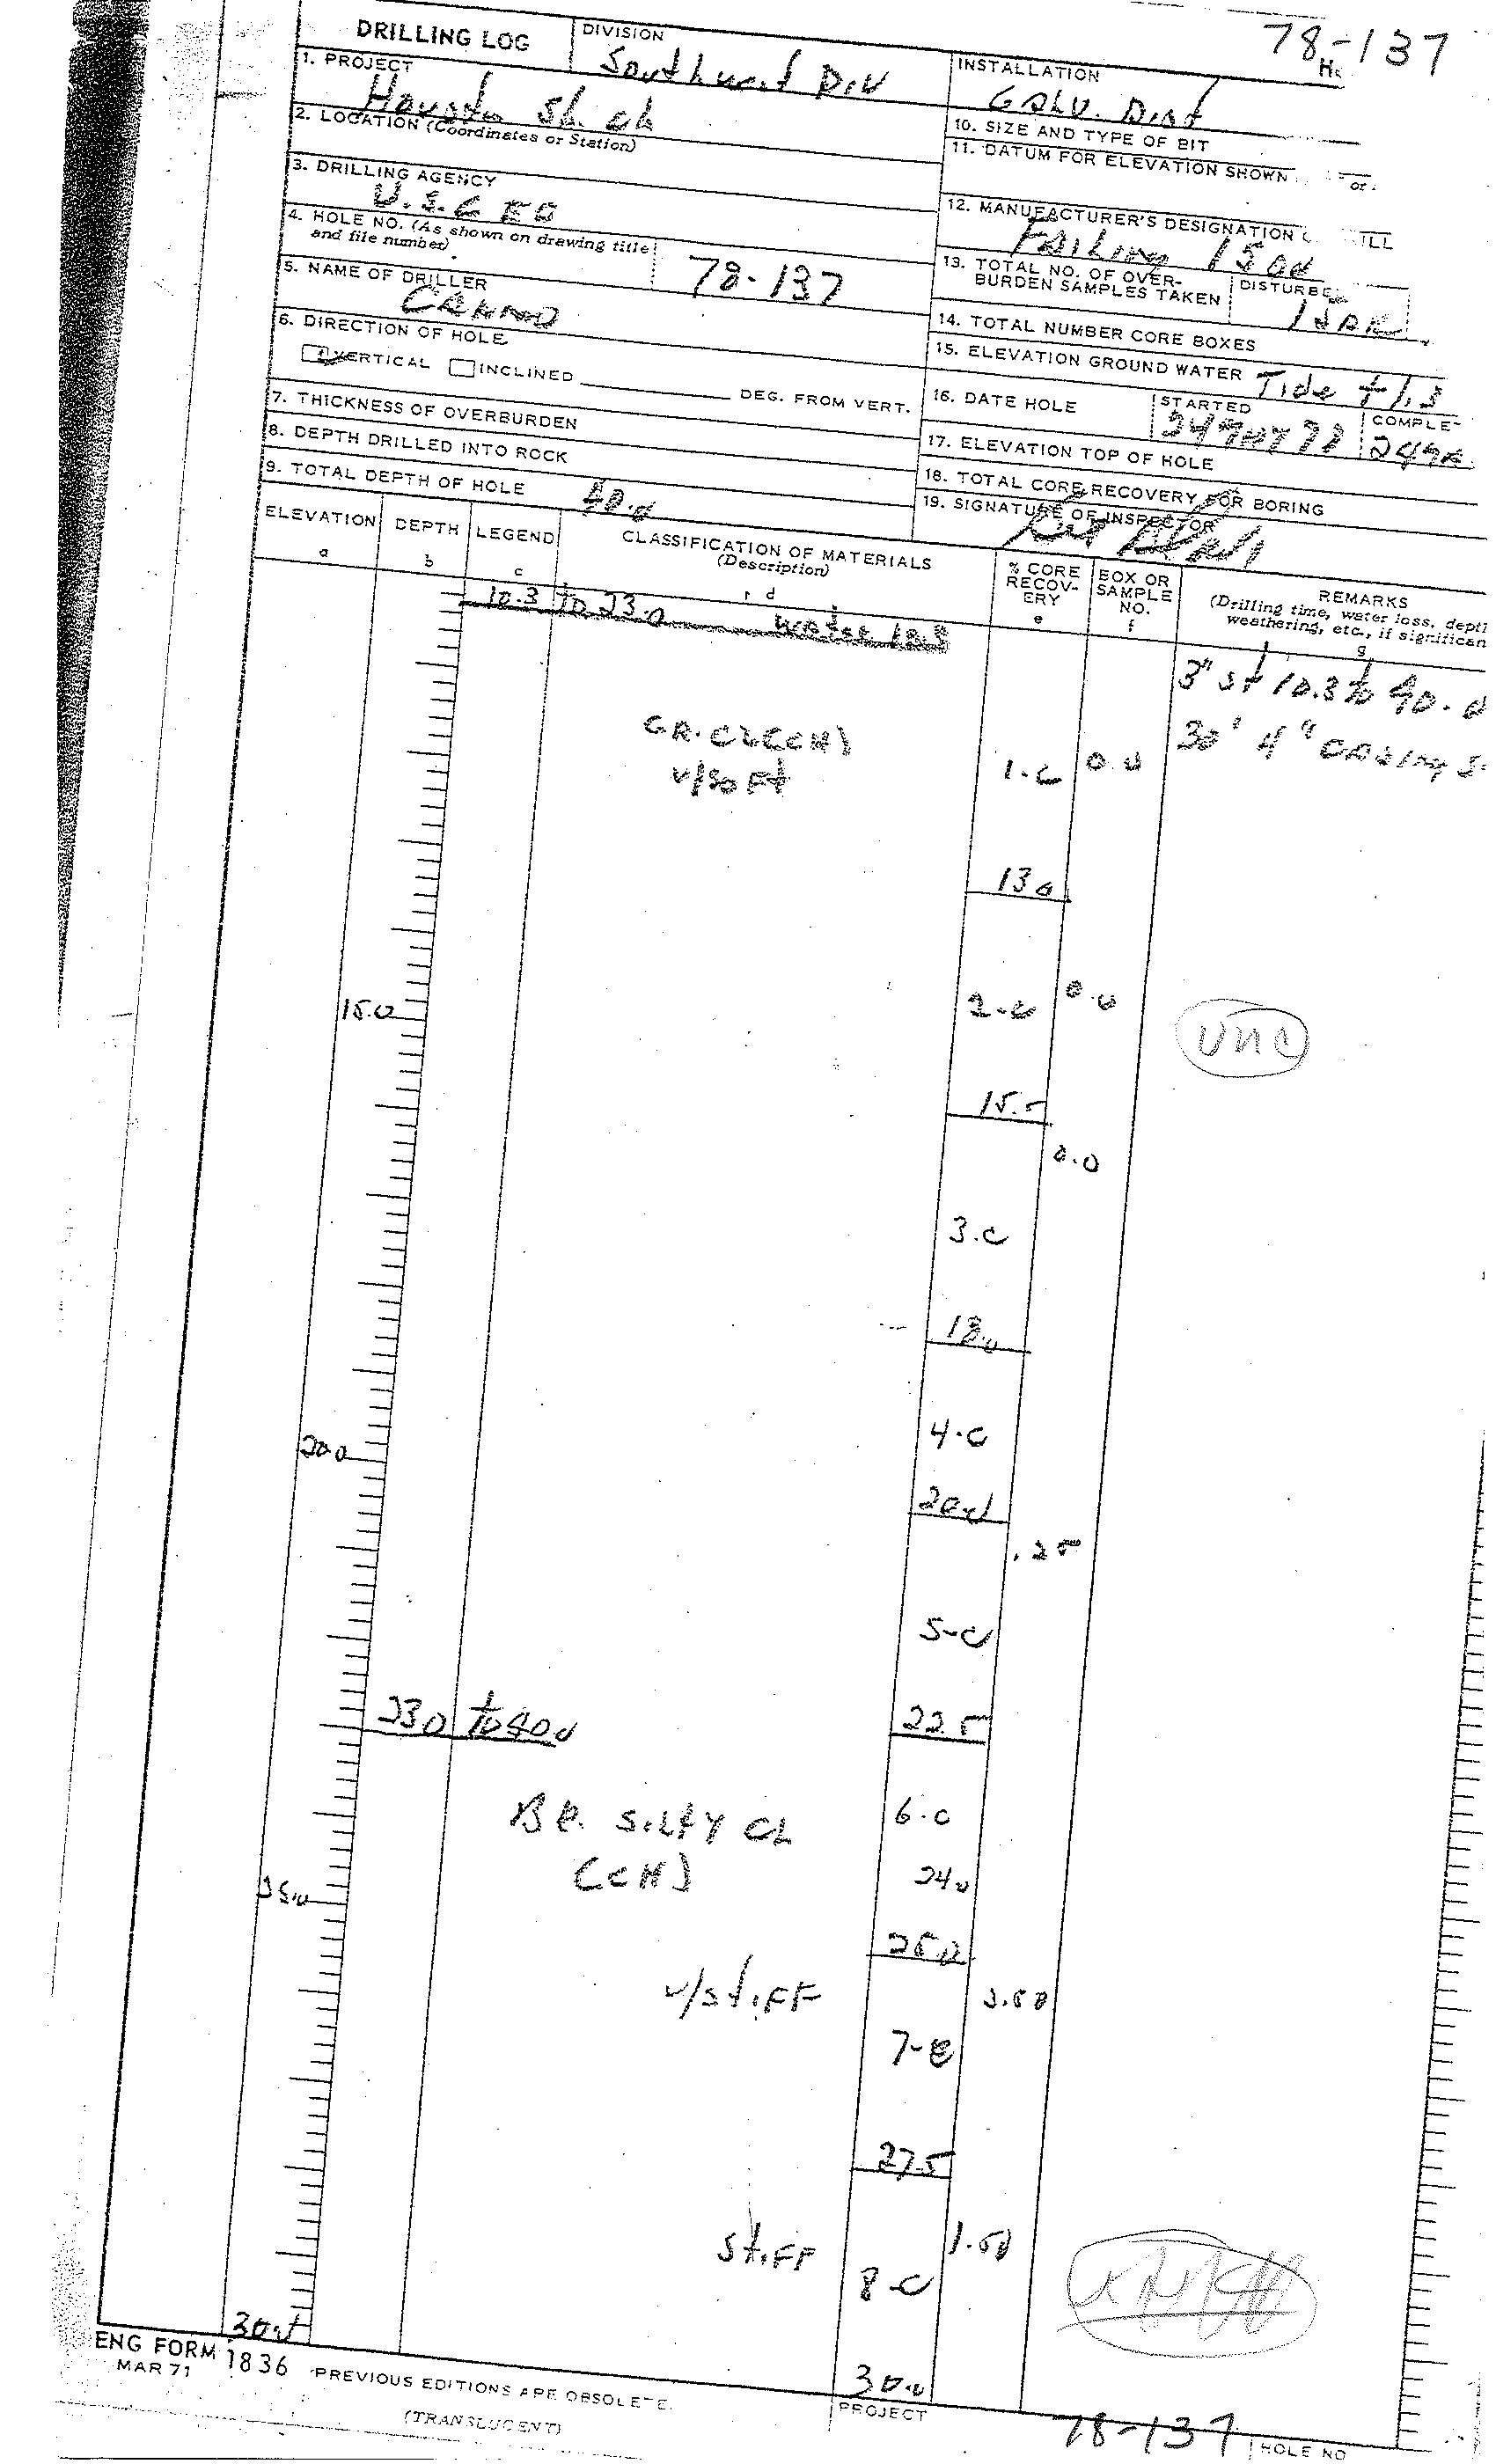 78-137
DRILLING LOG
DIVISION
Southwest Div
INSTALLATION
GALV. Dist
1. PROJECT
Houston Sh. Ch
10. SIZE AND TYPE OF BIT
2. LOCATION (Coordinates or Station)
11. DATUM FOR ELEVATION SHOWN
3. DRILLING AGENCY
U.S.C E
12. MANUFACTURER'S DESIGNATION
ILL
Failing 1500
4. HOLE NO. (As shown on drawing title
and file number)
78-137
13. TOTAL NO. OF OVER-
BURDEN SAMPLES TAKEN
DISTURBE
1 JAR
5. NAME OF DRILLER
14. TOTAL NUMBER CORE BOXES
6. DIRECTION OF HOLE
VERTICAL INCLINED DEG. FROM VERT.
15. ELEVATION GROUND WATER Tide +1.3
16. DATE HOLE
STARTED
COMPLE-
7. THICKNESS OF OVERBURDEN
17. ELEVATION TOP OF HOLE
8. DEPTH DRILLED INTO ROCK
18. TOTAL CORE RECOVERY FOR BORING
9. TOTAL DEPTH OF HOLE 40.0
19. SIGNATURE OF INSPECTOR
ELEVATION DEPTH LEGEND CLASSIFICATION OF MATERIALS
(Description)
% CORE
RECOV-
ERY
BOX OR
SAMPLE
NO.
REMARKS
(Drilling time, water loss, dept
weathering, etc., if significan
a b c d e f g
10.3 to 23.0 water 10.3
3" st 10.3 to 40.0
30' 4" casing
GR. CL (CH)
v/soft
1-C 0.0
13.0
15.0
2-C 0.0
UNC
15.5
0.0
3-C
18.0
4-C
20.0
20.0
.25
5-C
22.5
23.0 to 40.0
BR. SILTY CL
(CH)
6-C
24.0
25.0
25.0
v/stiff
7-C
27.5
stiff
1.50
8-C
30.0
30.0
ENG FORM 1836
MAR 71
PREVIOUS EDITIONS ARE OBSOLETE.
(TRANSLUCENT)
PROJECT
78-137
HOLE NO